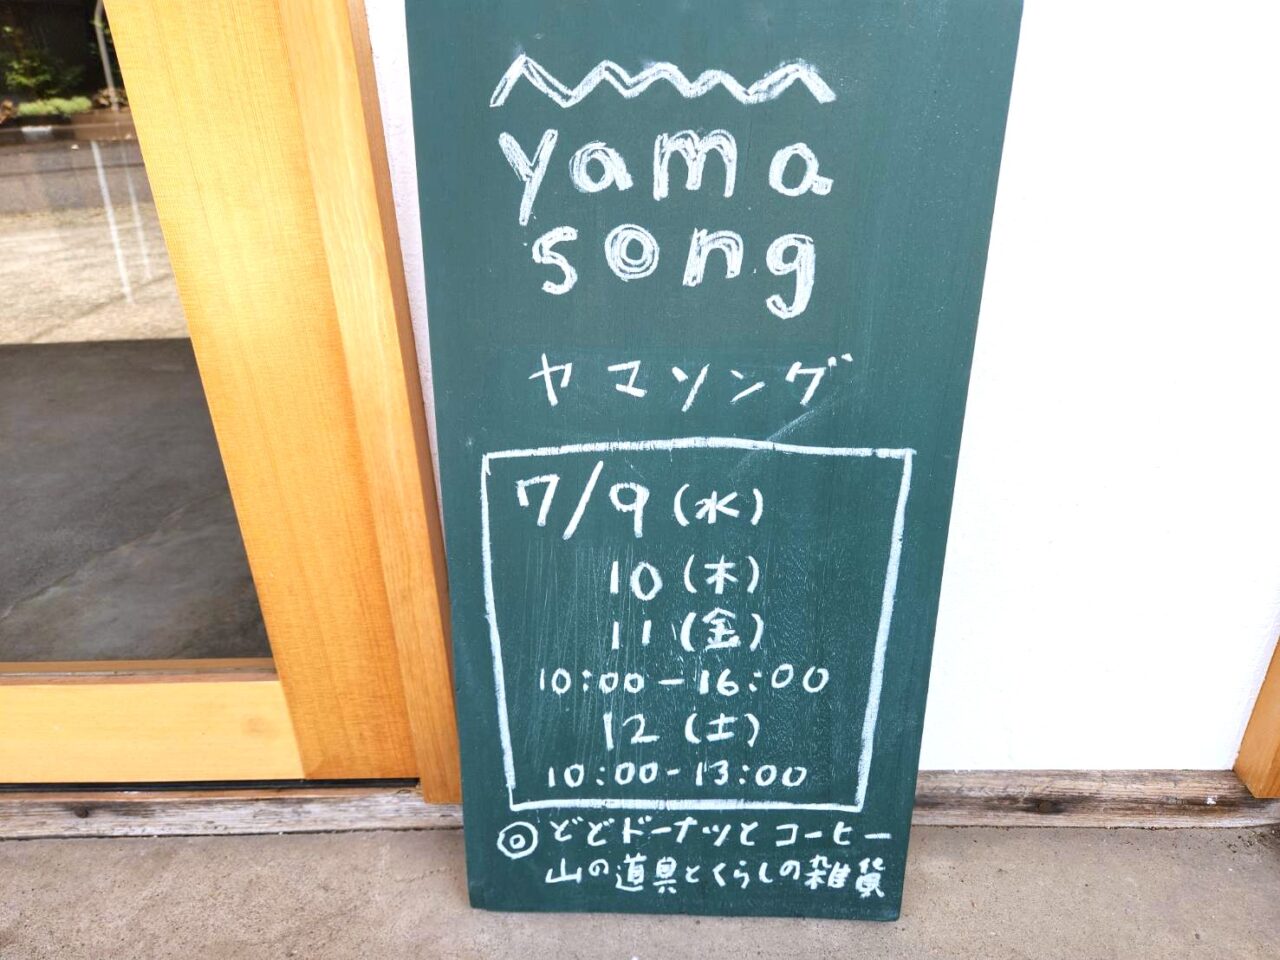 yama
song
ヤマソング
7/9(水)
10(木)
11(金)
10:00-16:00
12(土)
10:00-13:00
◎どどドーナツとコーヒー
山の道具とくらしの雑貨